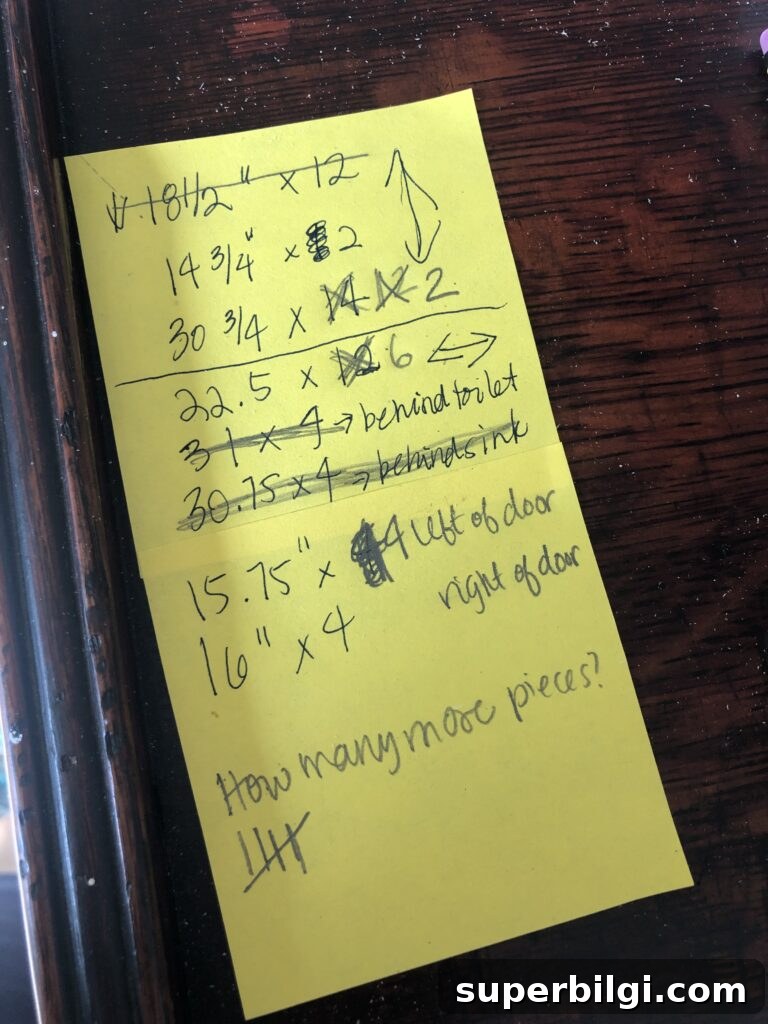 18 1/2" x 12
14 3/4" x 2
30 3/4 x 14 12 2
22.5 x 12 6
31 x 4 → behind toilet
30.75 x 4 → behind sink
15.75" x 4 left of door
16" x 4 right of door
How many more pieces?
superbilgi.com